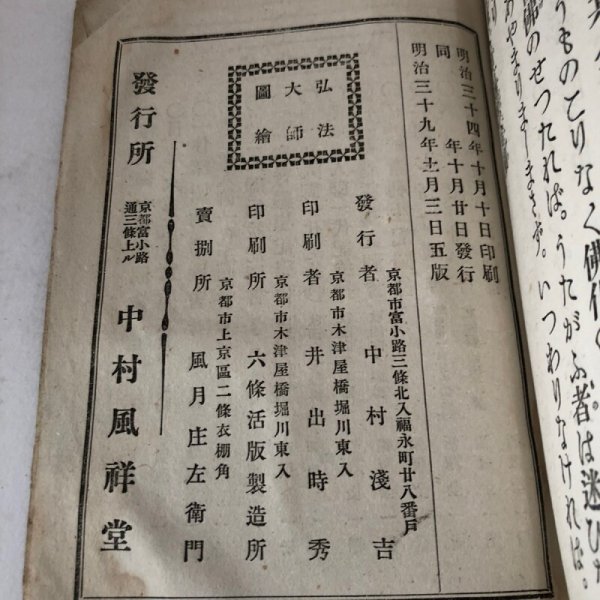 うものとりなく佛作
佛のせつたれば。うたがふ者は迷ひ
いつわりなければ。
明治三十四年十月十日印刷
同年十月廿日發行
明治三十九年十一月三日五版
弘法
大師
圖繪
京都市富小路三條北入福永町廿八番戸
發行者 中村淺吉
京都市木津屋橋堀川東入
印刷者 井出時秀
京都市木津屋橋堀川東入
印刷所 六條活版製造所
京都市上京區二條衣棚角
賣捌所 風月庄左衛門
發行所 京都富小路通三條上ル 中村風祥堂